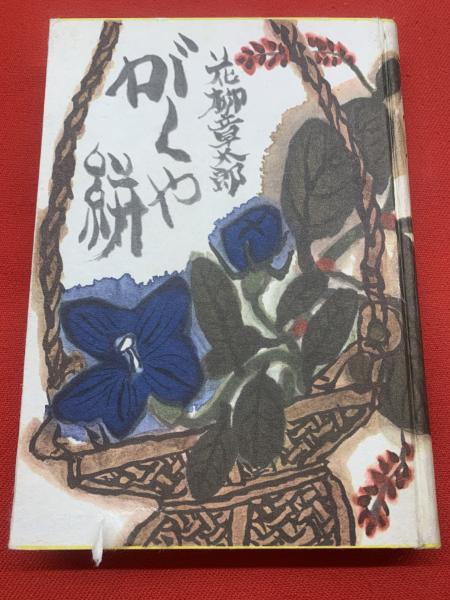 花柳章太郎
がくや絣